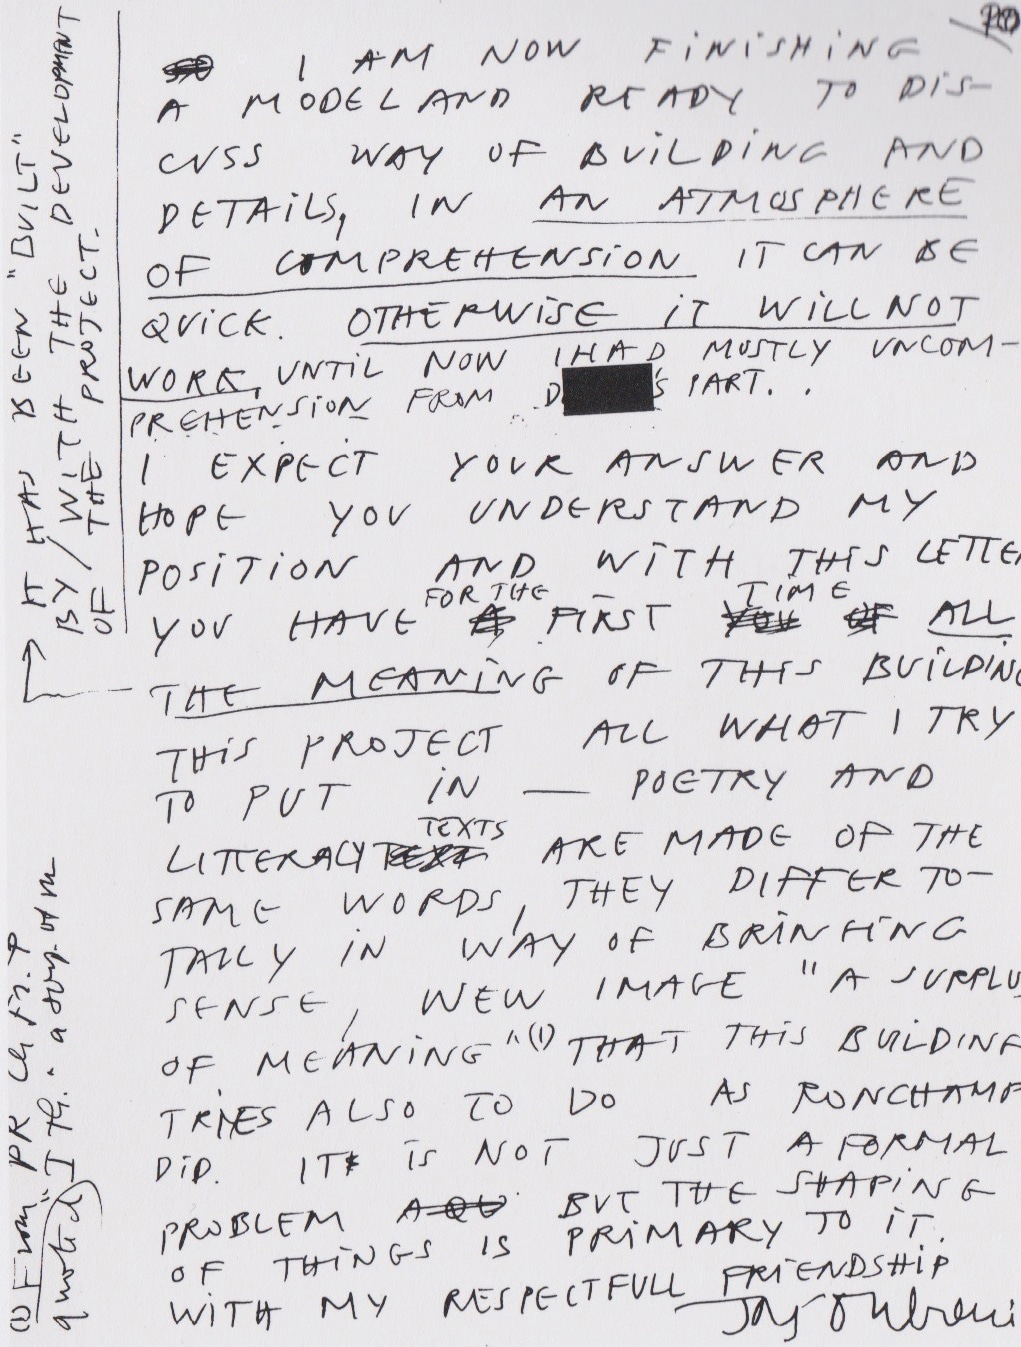 I AM NOW FINISHING
A MODEL AND READY TO DIS-
CUSS WAY OF BUILDING AND
DETAILS, IN AN ATMOSPHERE
OF COMPREHENSION IT CAN BE
QUICK. OTHERWISE IT WILL NOT
WORK, UNTIL NOW I HAD MOSTLY UNCOM-
PREHENSION FROM D 'S PART. .
I EXPECT YOUR ANSWER AND
HOPE YOU UNDERSTAND MY
POSITION AND WITH THIS LETTER
YOU HAVE FOR THE FIRST TIME ALL
THE MEANING OF THIS BUILDING
THIS PROJECT ALL WHAT I TRY
TO PUT IN — POETRY AND
LITTERACY TEXTS ARE MADE OF THE
SAME WORDS, THEY DIFFER TO-
TALLY IN WAY OF BRINFING
SENSE, WEW IMAGE "A SURPLUS
OF MEANING"(1) THAT THIS BUILDING
TRIES ALSO TO DO AS RONCHAMP
DID. IT IS NOT JUST A FORMAL
PROBLEM BUT THE SHAPING
OF THINGS IS PRIMARY TO IT.
WITH MY RESPECTFULL FRIENDSHIP
IT HAS BEEN "BUILT"
BY / WITH THE DEVELOPMENT
OF THE PROJECT.
(1) From PR
quoted